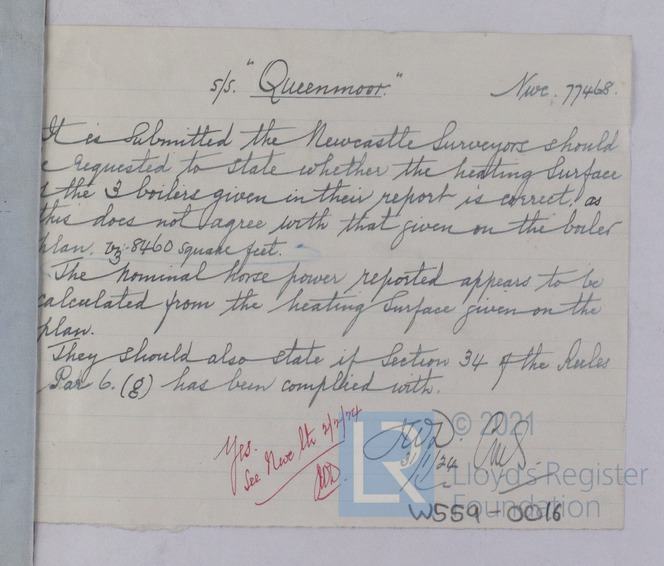 s/s. "Queenmoor." Nwc. 77468.
It is submitted the Newcastle Surveyors should
requested to state whether the heating surface
the 3 boilers given in their report is correct, as
this does not agree with that given on the boiler
plan. viz 8460 square feet.
The nominal horse power reported appears to be
calculated from the heating surface given on the
plan.
They should also state if Section 34 of the Rules
Par 6. (g) has been complied with.
Yes.
See Nwc ltr 2/2/24
31/1/24
© 2021
LR
Lloyd's Register
Foundation
W559-0016